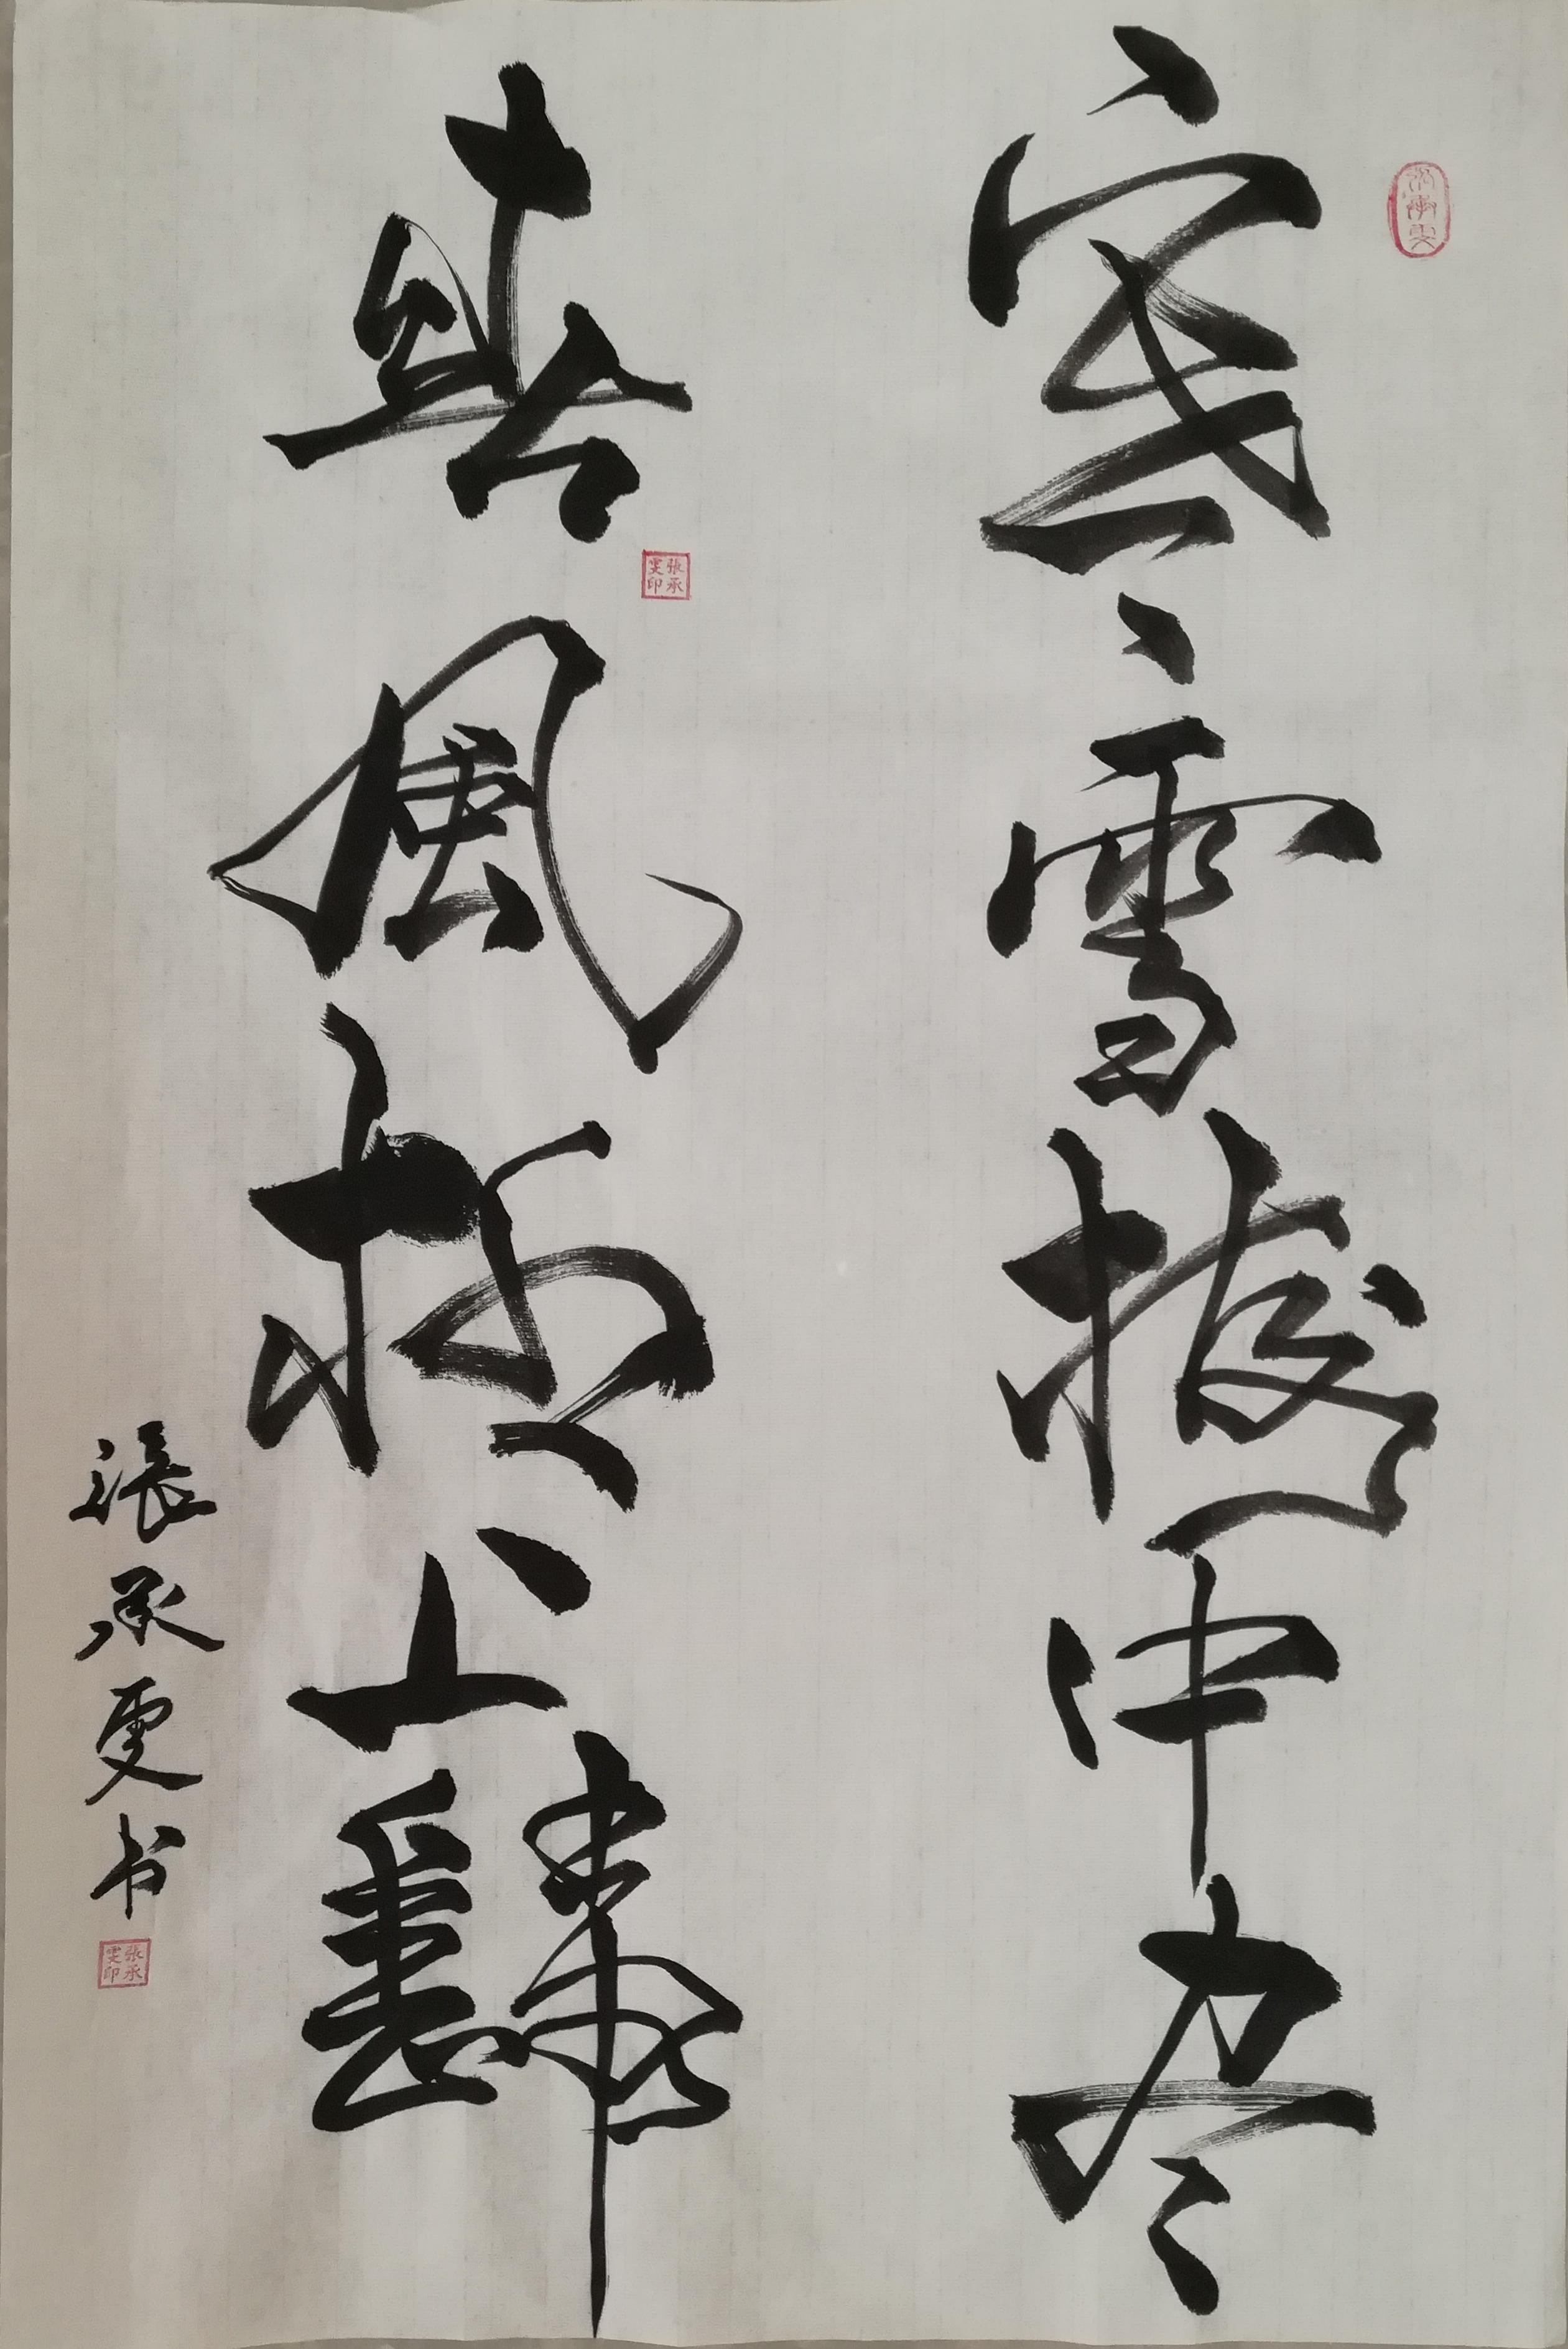 寒雪梅中尽
春風柳上歸
張承雯书
張承雯印
張承雯印